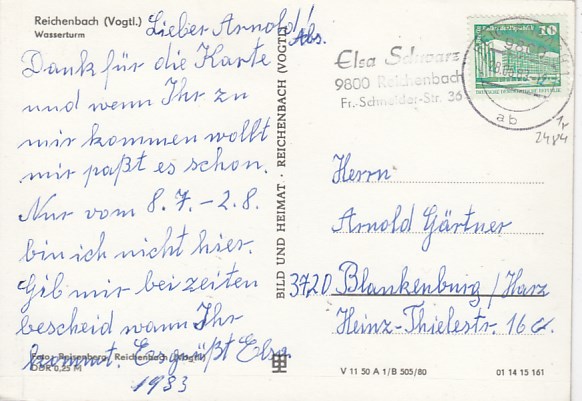 Reichenbach (Vogtl.)
Wasserturm
Lieber Arnold!
Dank für die Karte
und wenn Ihr zu
mir kommen wollt
mir paßt es schon.
Nur vom 8.7. - 2.8.
bin ich nicht hier.
Gib mir beizeiten
bescheid wann Ihr
kommt. Es grüßt Elsa
1983
Foto: Reisenberg, Reichenbach (Vogtl.)
DDR 0,25 M
BILD UND HEIMAT · REICHENBACH (VOGTL)
Abs.
Elsa Schwarz
9800 Reichenbach
Fr.-Schneider-Str. 36
10
DEUTSCHE DEMOKRATISCHE REPUBLIK
ab
2484
Herrn
Arnold Gärtner
3720 Blankenburg / Harz
Heinz-Thielestr. 16 a.
V 11 50 A 1/B 505/80
01 14 15 161